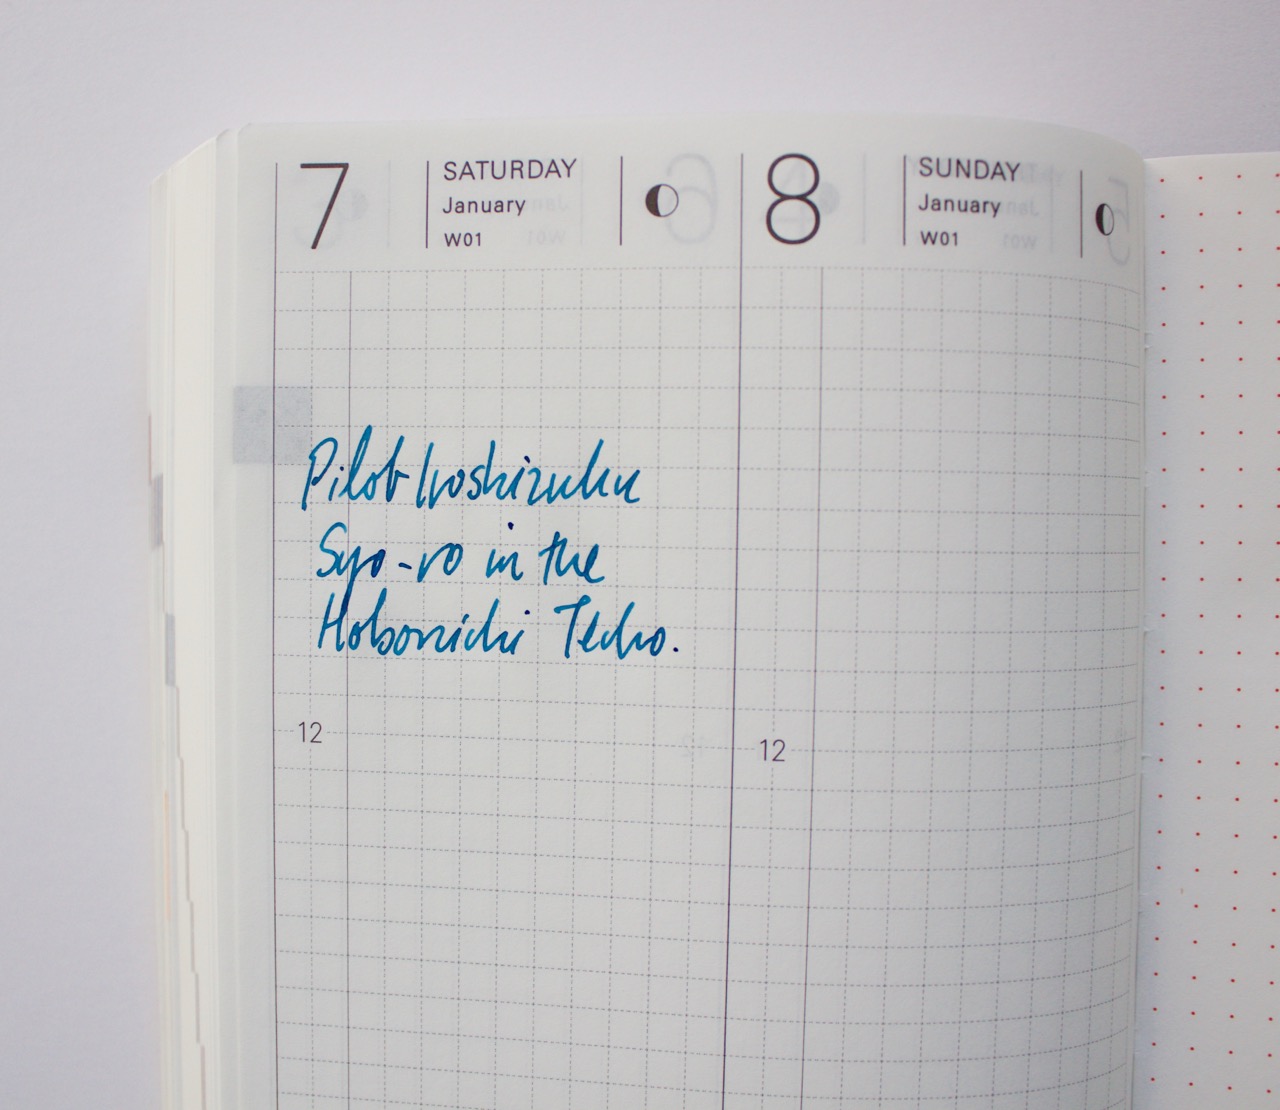 7
SATURDAY
January
W01
8
SUNDAY
January
W01
Pilot Iroshizuku
Syo-ro in the
Hobonichi Techo.
12
12